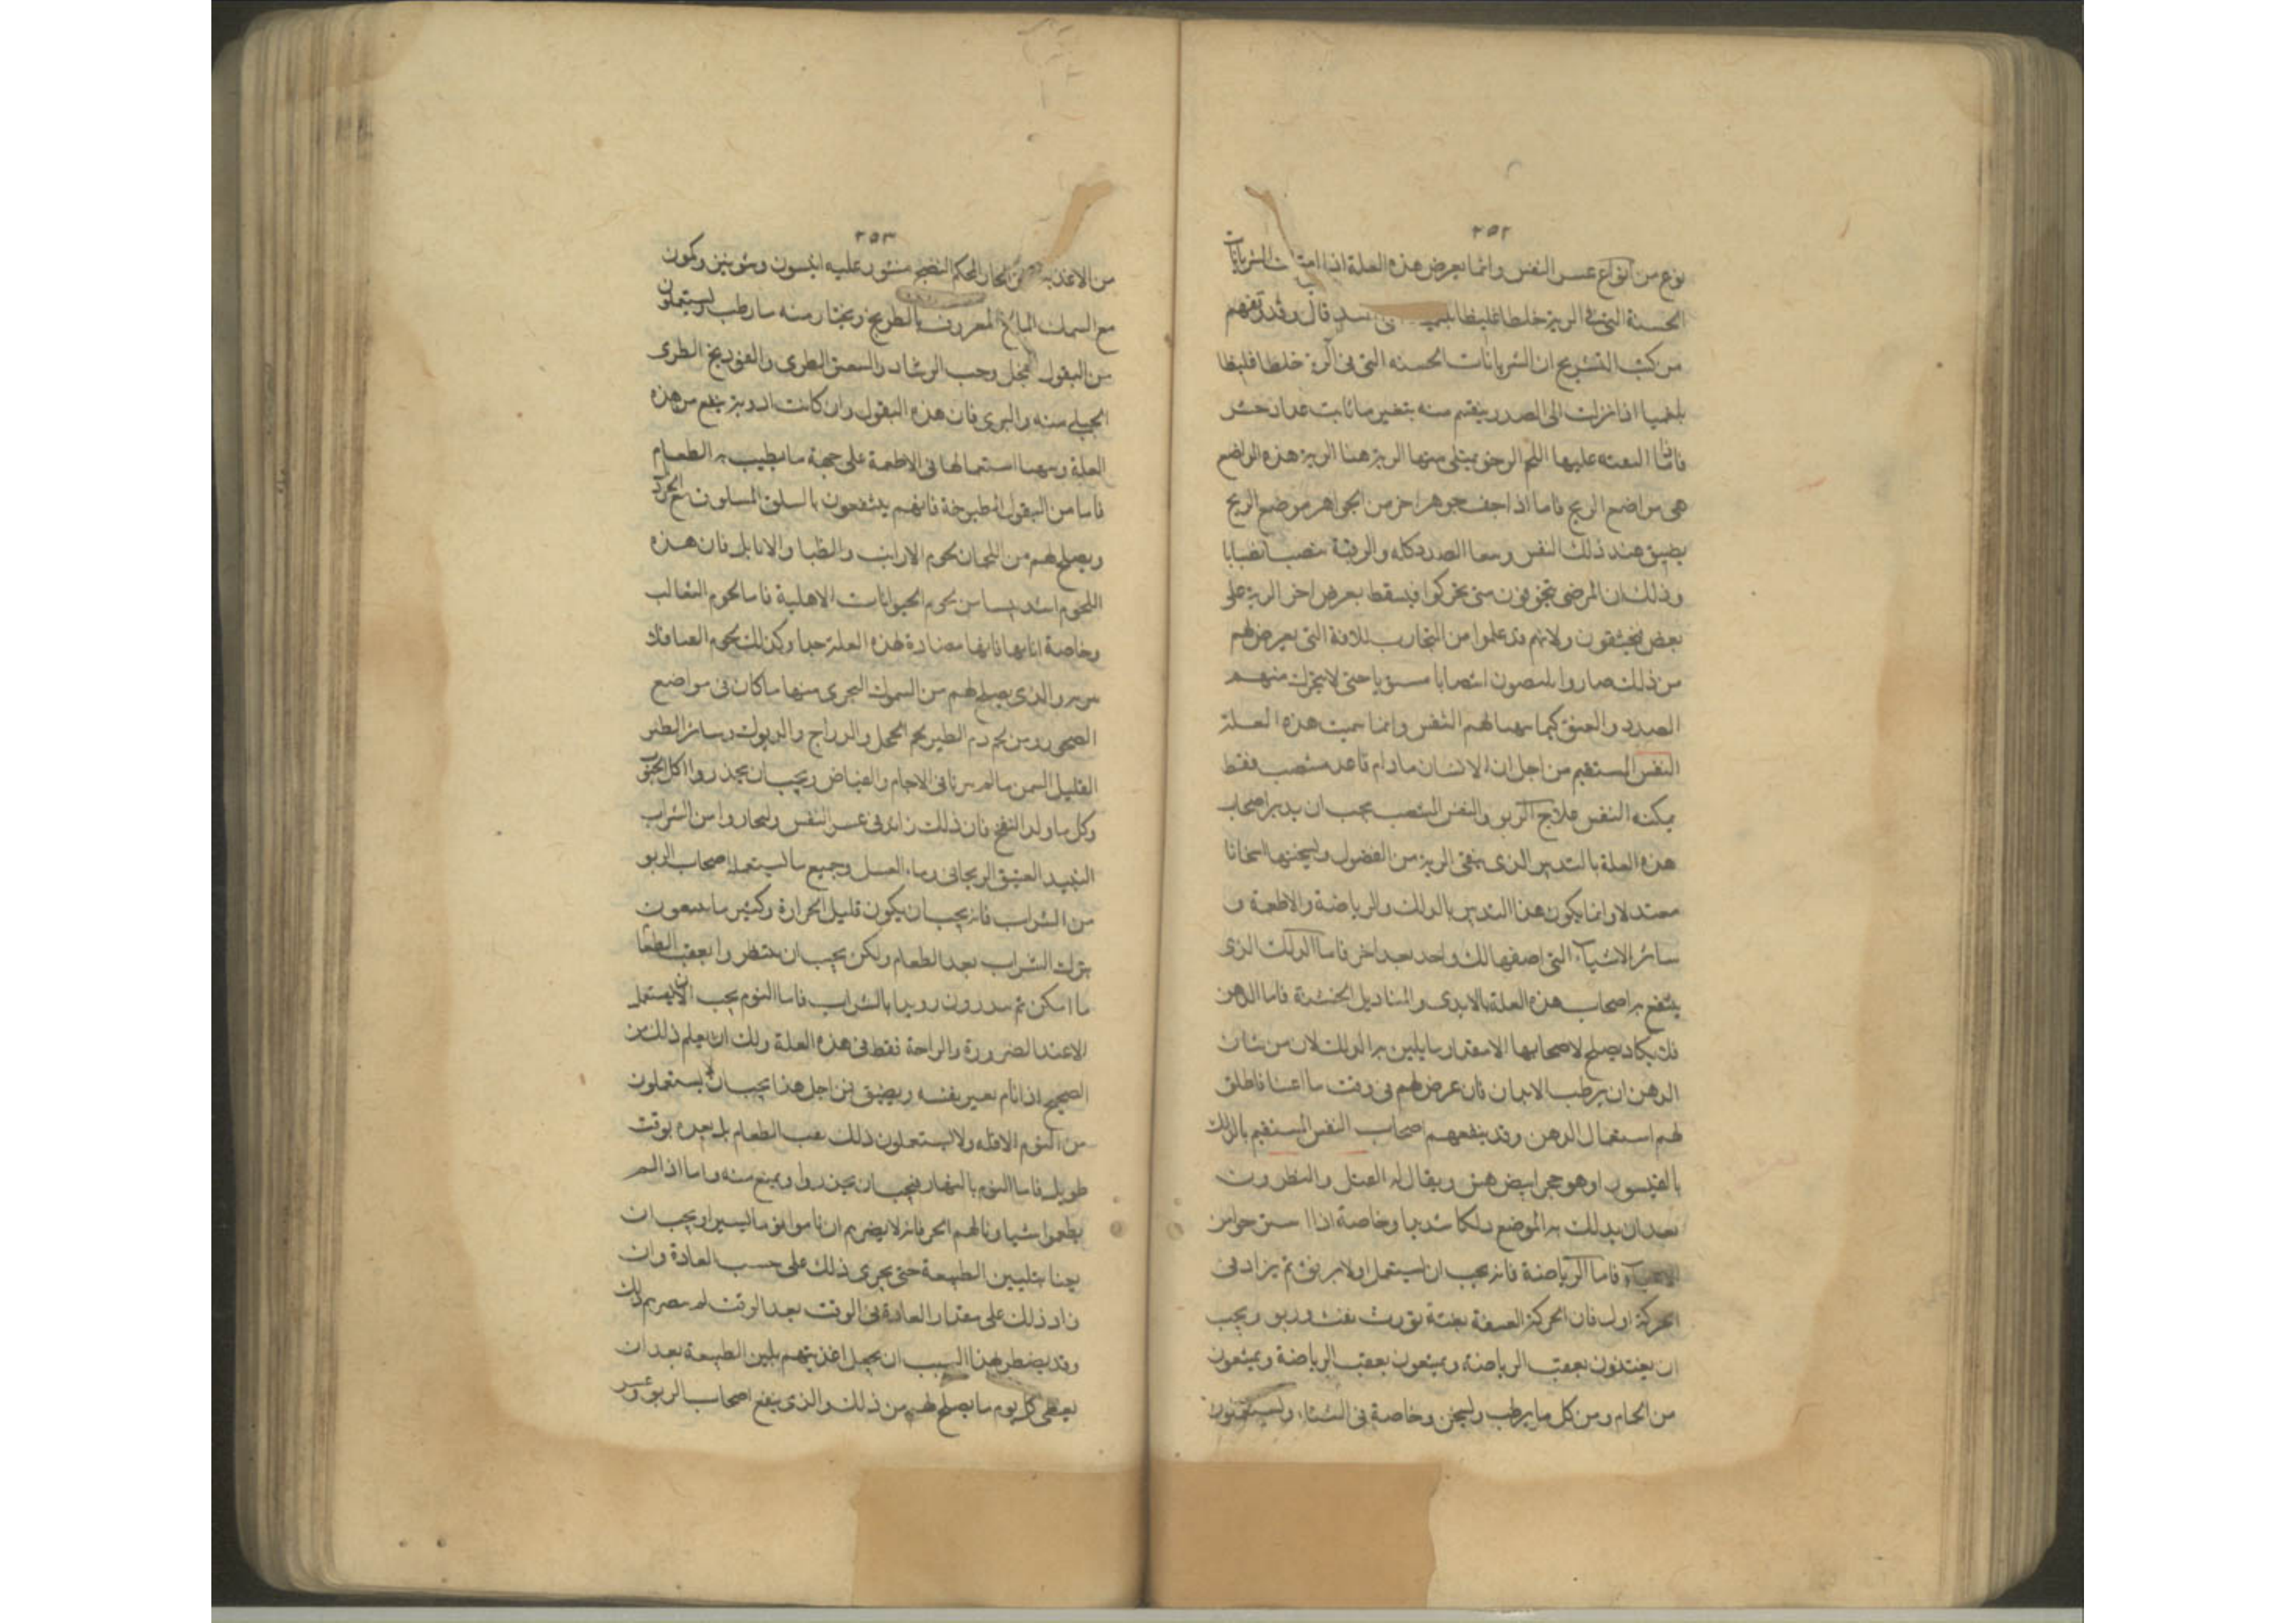 ٢٥٢
نوع من انواع عسر النفس وانما يعرض هذه العلة اذا الشريانات
الخشنة التى فى الرية خلطا غليظا قال وقد تفهم
من كتب التشريح ان الشريانات الخشنه التى فى الرية خلطا غليظا
بلغميا اذا نزلت الى الصدر ينقسم منه
فاما عليها اللحم الرخو يمتلى منها الرية هذه المواضع
هى مواضع الريح فاما اذا جوهر اخر من الجواهر موضع الريح
يضيق عند ذلك النفس الصدر كله والرية
وذلك ان المرضى يتخوفون متى تحركوا فيسقط بعرض اخر الرية على
بعض فيختنقون ولانهم قد علموا من التجارب للافة التى يعرض لهم
من ذلك صاروا انتصابا مستويا حتى لا يتحرك منهم
الصدر والعنق كيما لهم النفس وانما سميت هذه العلة
النفس المستقيم من اجل ان الانسان ما دام قاعد منتصب فقط
يمكنه النفس علاج الربو والنفس المنتصب يجب ان يدبر اصحاب
هذه العلة بالتدبير الذى ينقى الرية من الفضول ويسخنها اسخانا
معتدلا وانما يكون هذا التدبير بالدلك والرياضة والاطعمة و
سائر الاشياء التى اصفها لك واحد بعد اخر فاما الدلك الذى
ينتفع به اصحاب هذه العلة بالايدى والمناديل الخشنة فاما الدهن
فلا يكاد يصلح لاصحابها الا مقدار ما يلين به الدلك لان من شان
الدهن ان يرطب الابدان فان عرض لهم فى وقت ما اعيا فاطلق
لهم استعمال الدهن وقد ينفعهم اصحاب النفس المستقيم بالدلك
وهو حجر ابيض هش ويقال له والنطرون
بعد ان يدلك به الموضع دلكا شديدا وخاصة اذا
الاعياء فاما الرياضة فانه يجب ان يستعمل اولا برفق ثم يزاد فى
الحركة اول فان الحركة العنيفة بغتة تورث وربو ويجب
ان يغتذون بعقب الرياضة ويمنعون بعقب الرياضة ويمنعون
من الحمام ومن كل ما يرطب ويسخن وخاصة فى الشتاء
٢٥٣
من الاغذية الحار المحكم النضج منثور عليه انيسون وشونيز وكمون
مع السمك المالح المعروف بالطريخ ويختار منه ما رطب ويستعملون
من البقول الفجل وحب الرشاد والسعتر الطرى والفودنج الطرى
الجبلى منه والبرى فان هذه البقول وان كانت ادوية ينفع من هذه
العلة استعمالها فى الاطعمة على جهة ما يطيب به الطعام
فاما من البقول المطبوخة فانهم ينتفعون بالسلق المسلوق مع الخردل
ويصلح لهم من اللحمان لحوم الارانب والظبا والايايل فان هذه
اللحوم اشد يبسا من لحوم الحيوانات الاهلية فاما لحوم الثعالب
وخاصة فانها مضادة لهذه العلة جدا وكذلك لحوم القنافذ
والذى يصلح لهم من السموك البحرى منها ما كان فى مواضع
الصخور ومن لحوم الطير لحم الحجل والدراج والديوك وسائر الطير
القليل السمن ما لم فى الاجام والغياض ويجب ان يحذروا اكل الحبوب
وكل ما ولد النفخ فان ذلك زائد فى عسر النفس وليختاروا من الشراب
النبيذ العتيق الريحانى وماء العسل وجميع ما يستعمله اصحاب الربو
من الشراب فانه يجب ان يكون قليل الحرارة وكثير ما
بترك الشراب بعد الطعام ولكن يجب ان ينتظروا بعقب الطعام
ما امكن ثم رويدا بالشراب فاما النوم يجب ان لا يستعمل
الا عند الضرورة والراحة فقط فى هذه العلة ولك ان يعلم ذلك من
الصحيح اذا نام نفسه ويضيق فمن اجل هذا يجب ان لا يستعملون
من النوم الا اقله ولا يستعملون ذلك عقب الطعام بل بعده بوقت
طويل فاما النوم بالنهار فيجب ان يحذروا ويمنع منه واما اذا لم
يطعموا شيا ونالهم الحر فانه لا يضر بهم ان ناموا يسيرا ويجب ان
يعنا بتليين الطبيعة حتى يجرى ذلك على حسب العادة وان
زاد ذلك على مقدار العادة فى الوقت بعد الوقت لم يضر بهم ذلك
وقد يضطر لهذا السبب ان يجعل اغذيتهم يلين الطبيعة بعد ان
يعطى كل يوم ما يصلح لهم من ذلك والذى ينفع اصحاب الربو وعسر